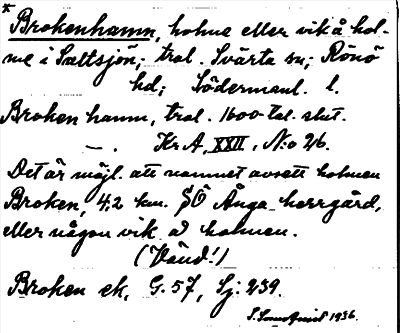 * Brokenhamn, holme eller vik å hol-
me i Saltsjön; trol. Svärta sn; Rönö
hd; Södermanl. l.
Broken hamn, trol. 1600-tal. slut.
—. Kr. A, XXII, N:o 26.
Det är möjl. att namnet avsett holmen
Broken, 4,2 km. SÖ Ånga herrgård,
eller någon vik å holmen.
(Vänd!)
Broken ek, G. 57, Sj: 239.
1936.